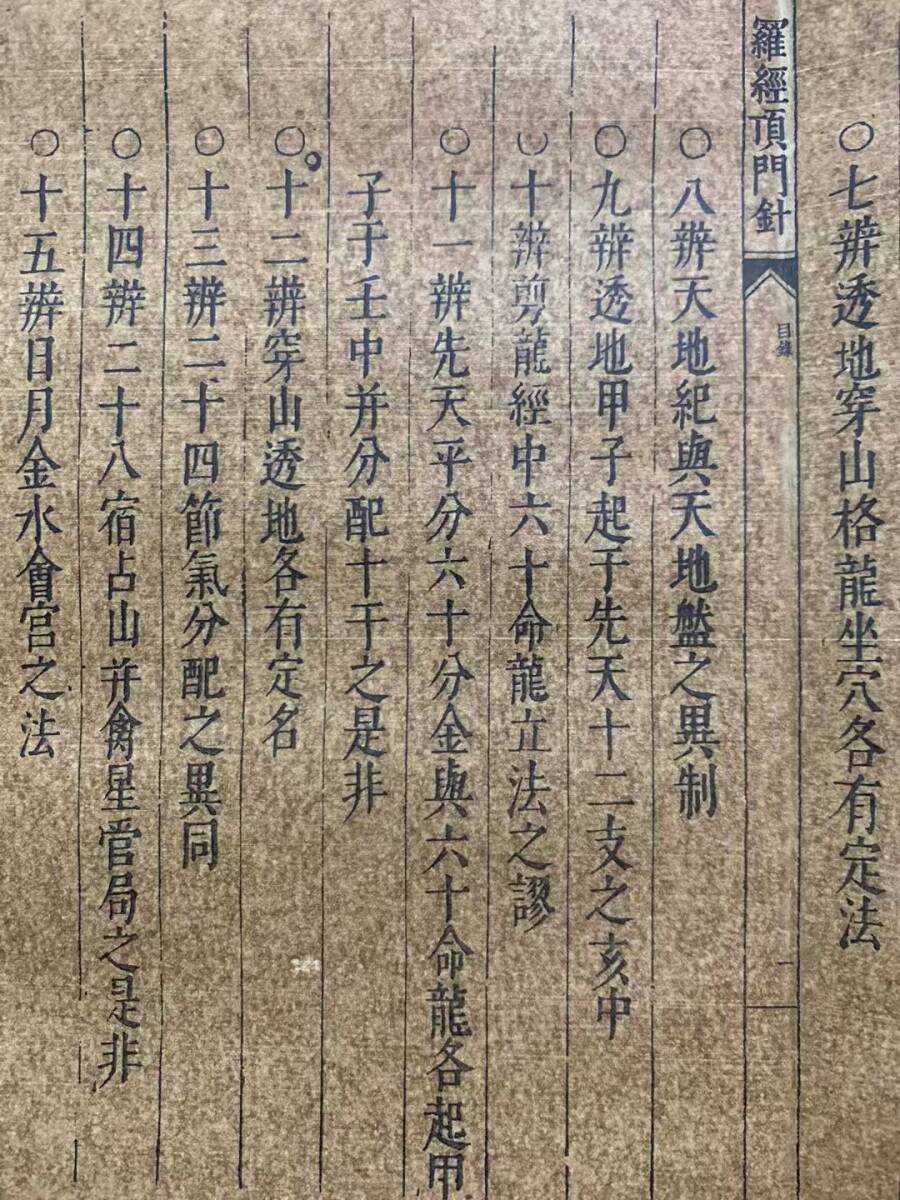 ○七辨透地穿山格龍坐穴各有定法
羅經頂門針
目錄
一
○八辨天地紀與天地盤之異制
○九辨透地甲子起于先天十二支之亥中
○十辨剪龍經中六十命龍立法之謬
○十一辨先天平分六十分金與六十命龍各起甲
子于壬中并分配十干之是非
○十二辨穿山透地各有定名
○十三辨二十四節氣分配之異同
○十四辨二十八宿占山并禽星管局之是非
○十五辨日月金水會宮之法